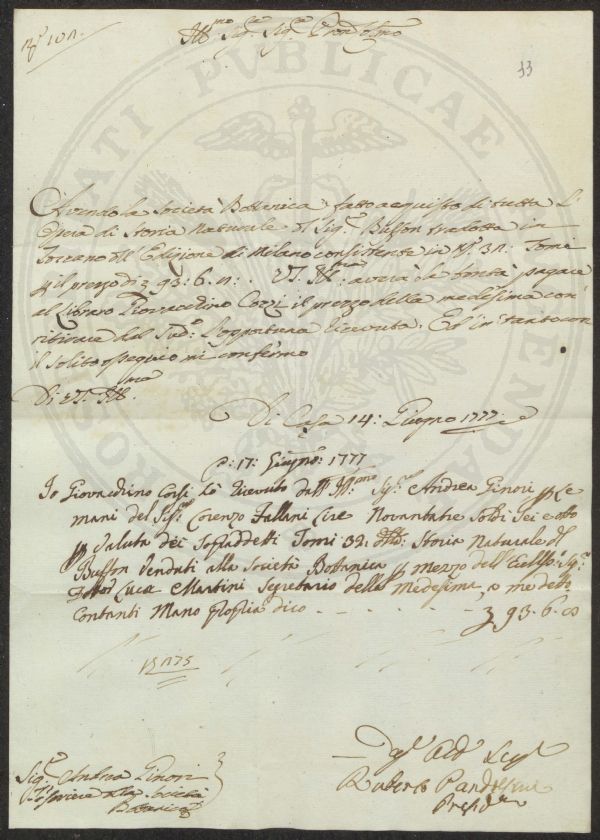 N.º 102
Ill.mo Sig.re Sig.re Pron Col.mo
33
Avendo la Società Bottanica fatto acquisto di tutta l'
Opera di Storia Naturale del Sig.r Buffon tradotta in
Toscano dell'Edizione di Milano consistente in N.º 32. Tomi
il prezzo di 93. 6. 8. V.S. Ill.ma averà la bontà pagare
al Libraro Giovacchino Corsi il prezzo della medesima con
ritirare dal Sud.º l'opportuna ricevuta. Ed in tanto con
il solito ossequio mi confermo
Di V.S. Ill.ma
Di Casa 14: Giugno 1777.
A: 17: Giugno: 1777
Io Giovacchino Corsi hò ricevuto dall Ill.mo Sig.re Andrea Ginori per le
mani del Sig.re Lorenzo Fallani Lire Novantatre Soldi Sei e otto
per Valuta dei Sopraddetti Tomi 32: Storia Naturale di
Buffon Vendati alla Società Botanica per mezzo dell' Sig.re
Luca Martini Segretario della Medesima, a me detto
Contanti Mano propria dico - - - - - - 93. 6. 8
Sig.re Andrea Ginori
Tesoriere della Società
Botanica
Ruberto Pandolfini
Presid.te
OSTI PUBLICAE